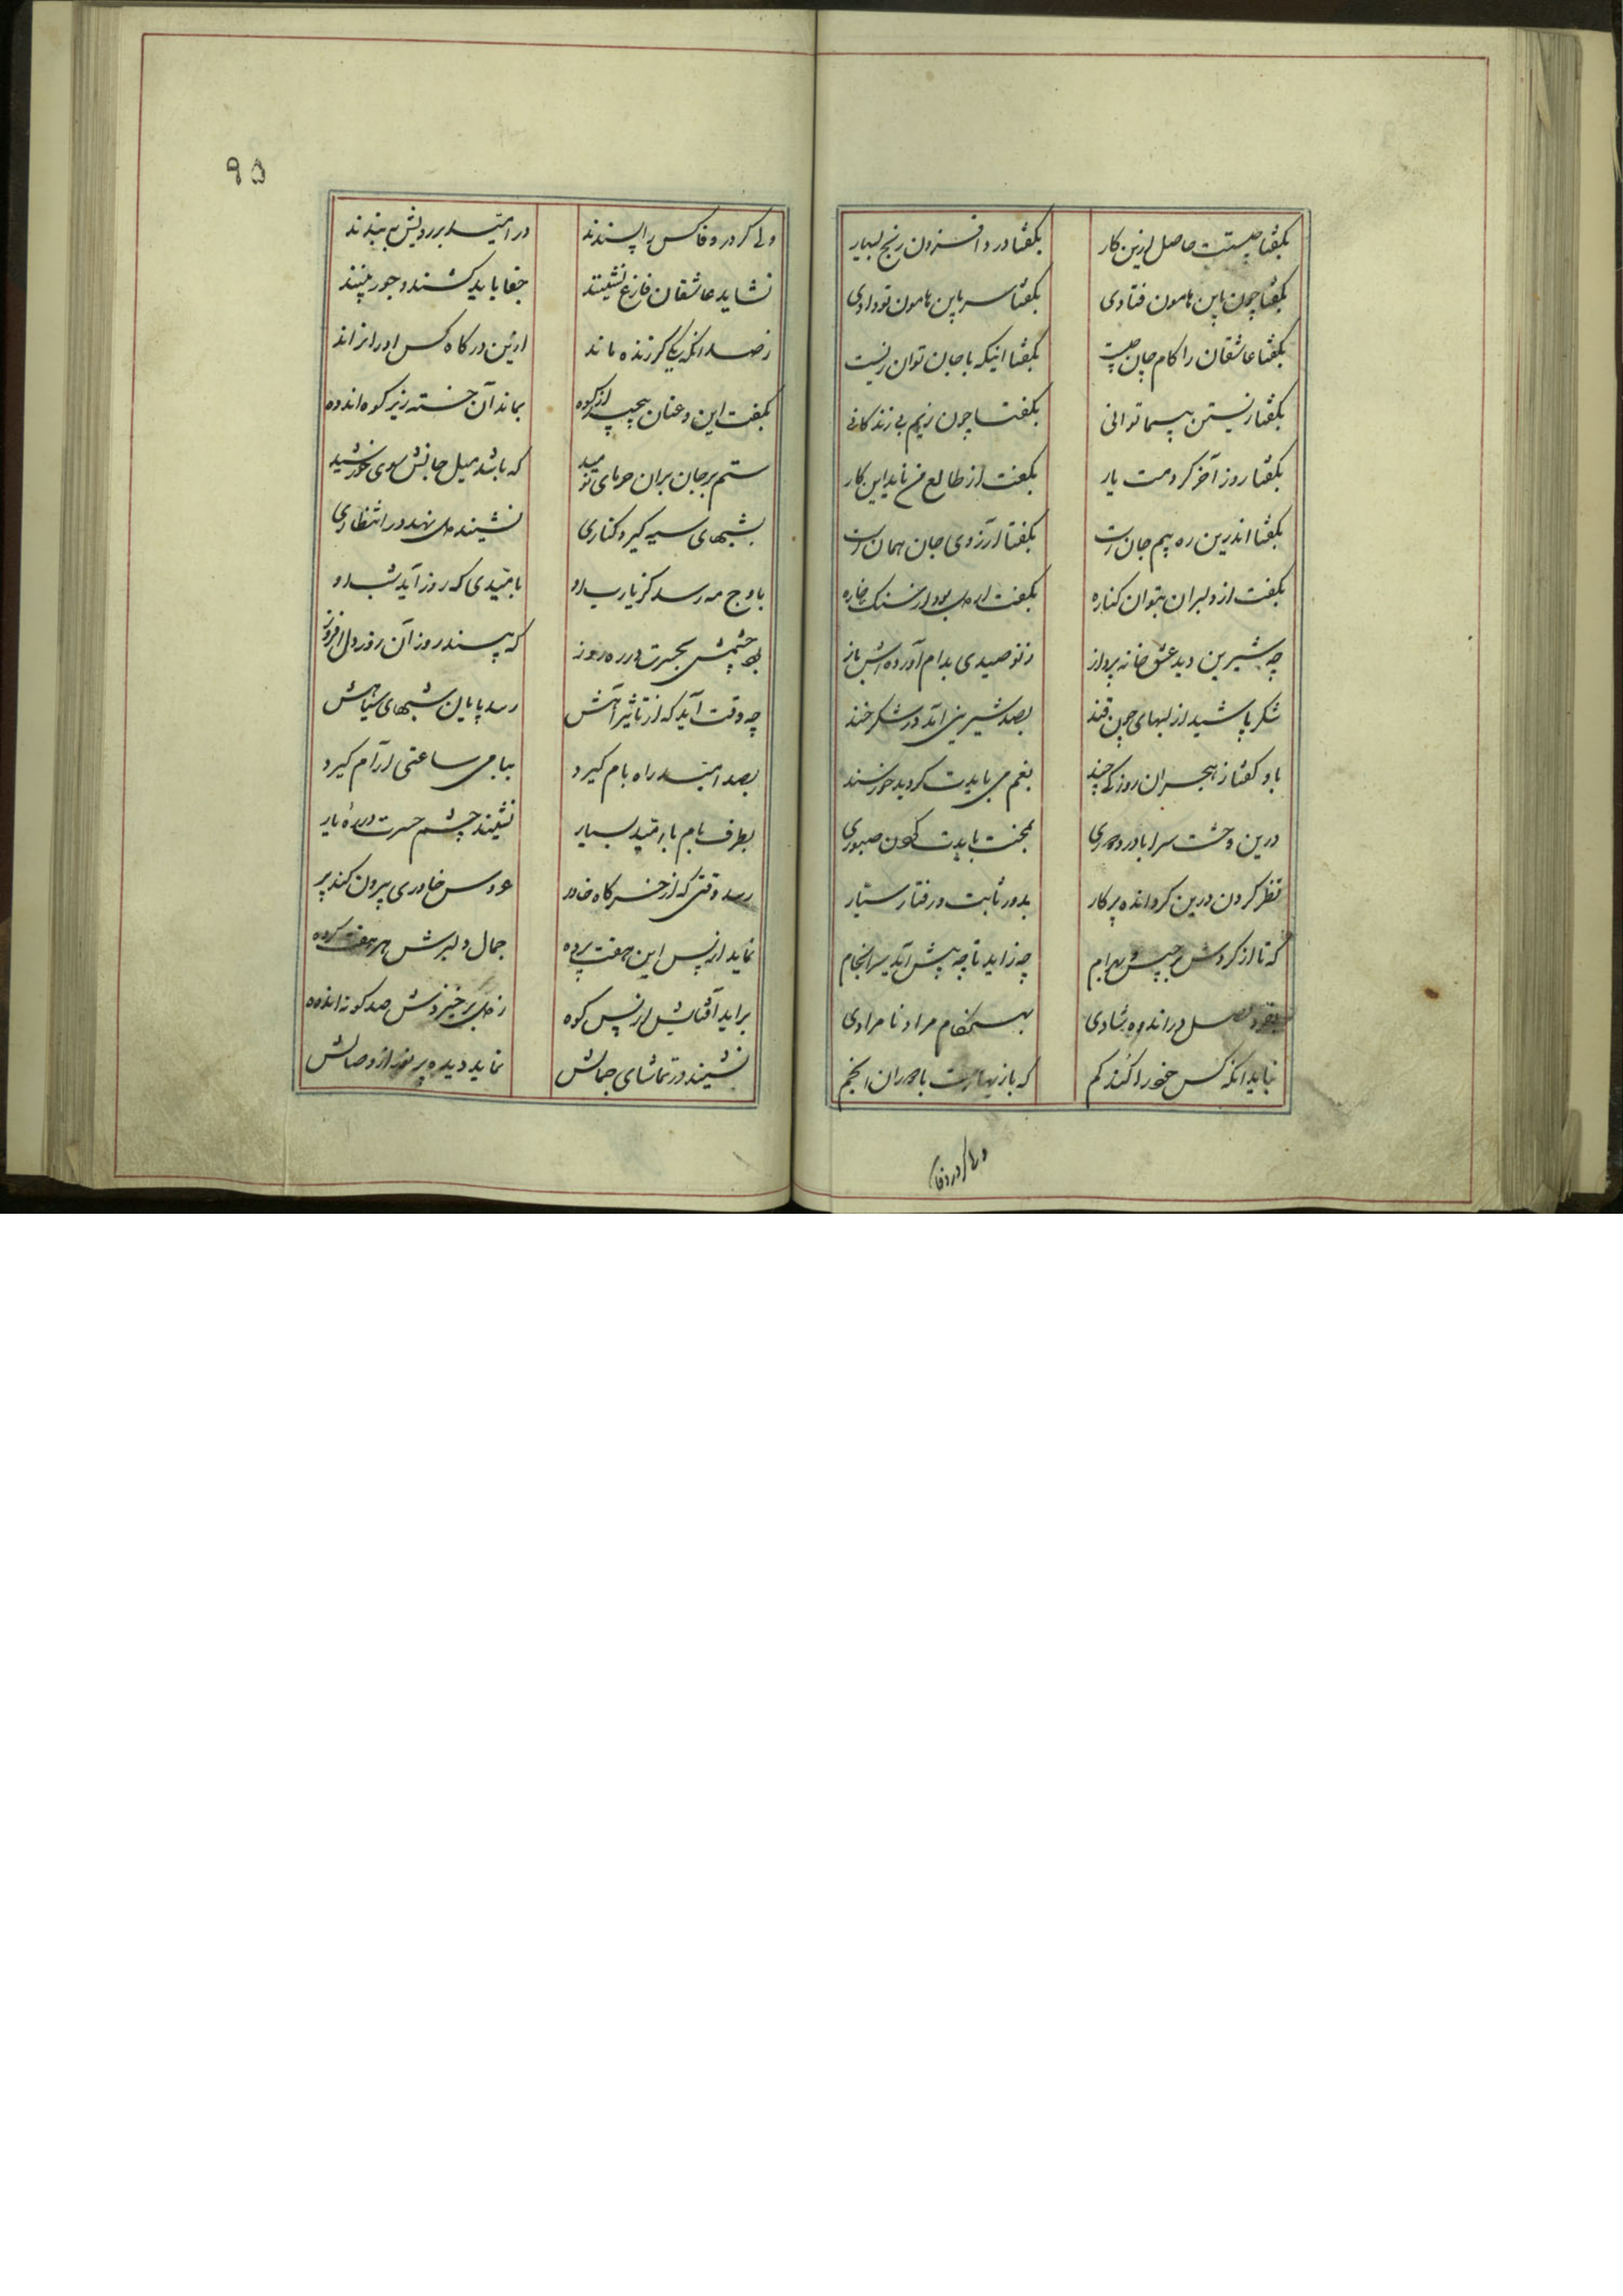 بگفتا چیست حاصل ازین کار بگفتا درد افزون رنج بسیار
بگفتا چون باین هامون فتادی بگفتا سر باین هامون تو دادی
بگفتا عاشقان را کام جان چیست بگفتا اینکه با جان توان زیست
بگفتا زیستن بیما توانی بگفتا چون زیم بی زندگانی
بگفتا روز آخر گردمت یار بگفت از طالع من ناید این کار
بگفتا اندرین ره بیم جان است بگفتا آرزوی جان همان است
بگفت از دلبران بتوان کناره بگفت ار دل بود از سنگ خاره
چه شیرین دید عشق خانه پرداز ز نو صیدی بدام آورده اش باز
شکر پاشید از لبهای چون قند بصد شیرینی آمد در شکرخند
باو گفتا ز هجران روزکی چند بغم می بایدت گردید خورسند
درین وحشت سرا با درد دوری بمحنت بایدت کردن صبوری
نظر کردن درین گردنده پرکار بدور ثابت و رفتار سیار
که تا از گردش برجیس و بهرام چه زاید تا چه پیش آید سرانجام
وصل در اندوه شادی بهنگام مراد نامرادی
نباید آنکه کس خود را کند گم که بازیهاست با دوران انجم
ولی گر در وفا
٩٥
ولی گر در وفا کس را پسندند در امید بر رویش ببندند
نشاید عاشقان فارغ نشینند جفا باید کشند و جور بینند
ز صد آنکه یکی گر زنده ماند ازین درگاه کس او را نراند
بگفت این و عنان پیچید از کوه بماند آن خسته زیر کوه اندوه
ستم بر جان بران حربای نومید که باشد میل جانش سوی خورشید
بشبهای سیه گیرد کناری نشیند دل نهد در انتظاری
باوج مه رسد کز یارب او بامیدی که روز آید شب او
بود چشمش بحسرت در ره روز که بیند روز آن روز دل افروز
چه وقت آید که از تاثیر آهش رسد پایان شبهای سیاهش
بصد امید راه بام گیرد ببامی ساعتی آرام گیرد
بطرف بام با امید بسیار نشیند چشم حسرت در ره یار
رسد وقتی که از خرگاه خاور عروس خاوری بیرون کند پر
نماید از پس این هفت پرده جمال دلبرش هر هفت کرده
براید آفتابش از پس کوه ز دل برخیزدش صد گونه اندوه
نشیند در تماشای جمالش نماید دیده پر نور از وصالش